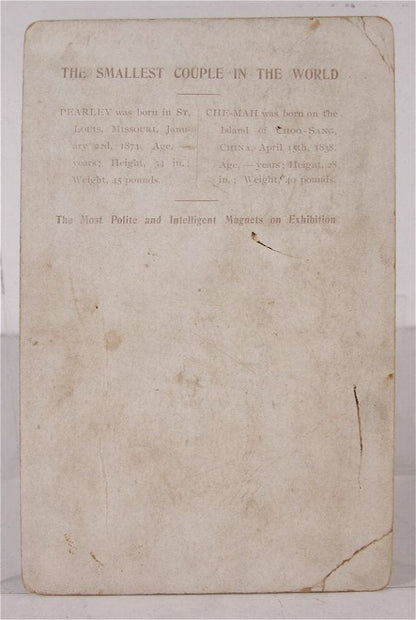 THE SMALLEST COUPLE IN THE WORLD
PEARLEY was born in ST.
LOUIS, MISSOURI, Janu-
ary 22d, 1874. Age, —
years; Height, 34 in.;
Weight, 45 pounds.
CHE-MAH was born on the
Island of CHOO-SANG,
CHINA, April 15th, 1838.
Age, — years; Height, 28
in.; Weight, 40 pounds.
The Most Polite and Intelligent Magnets on Exhibition